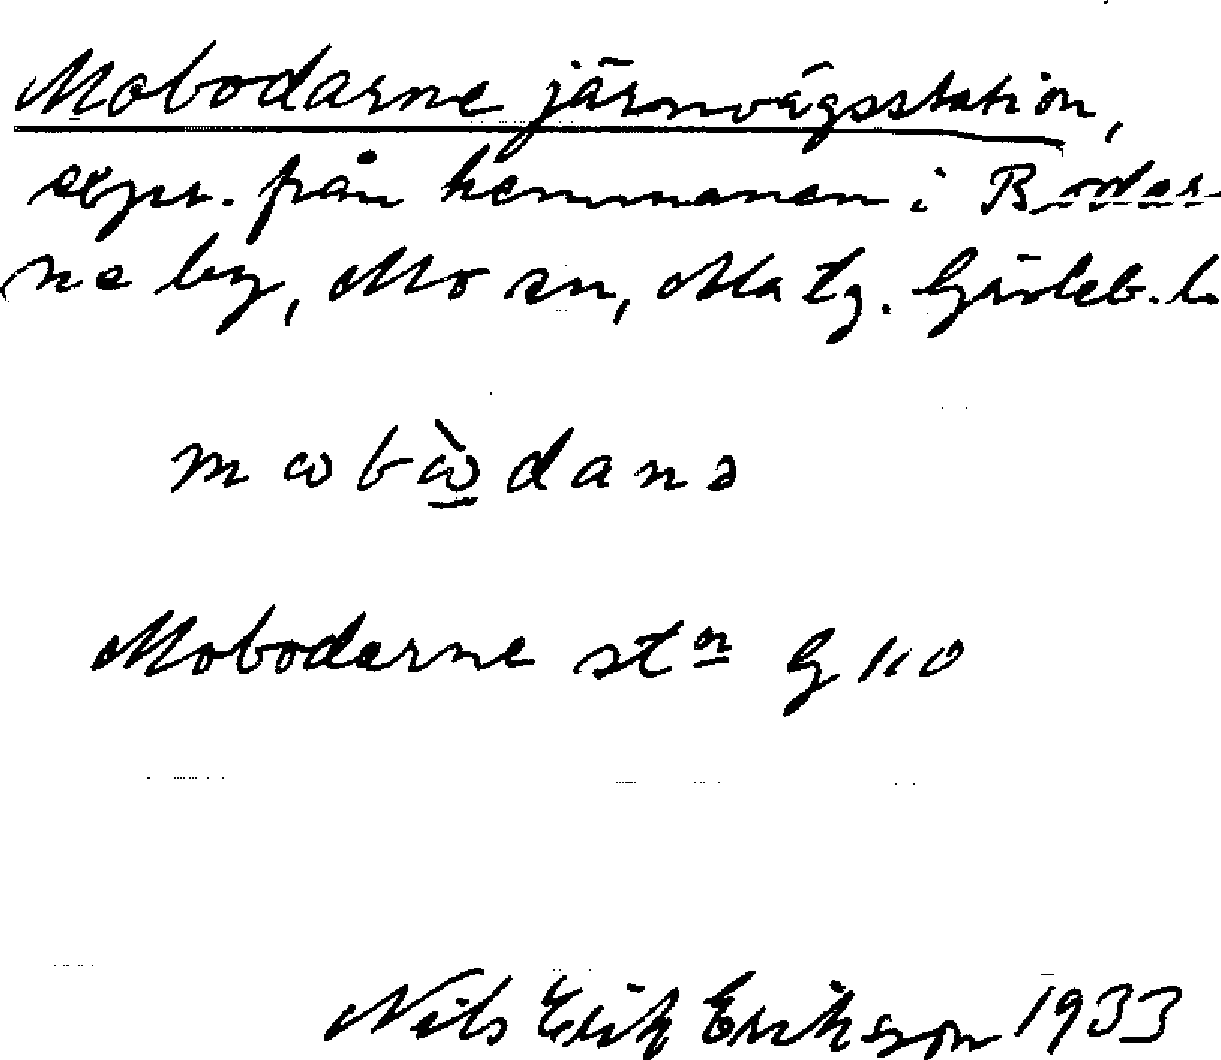 Mobodarne järnvägsstation,
expr. från hemmanen i Bodar-
ne by, Mo sn, Matg. Gävleb. l.
mωbὼdanə
Mobodarne stn G 110
Nils Erik Erikson 1933